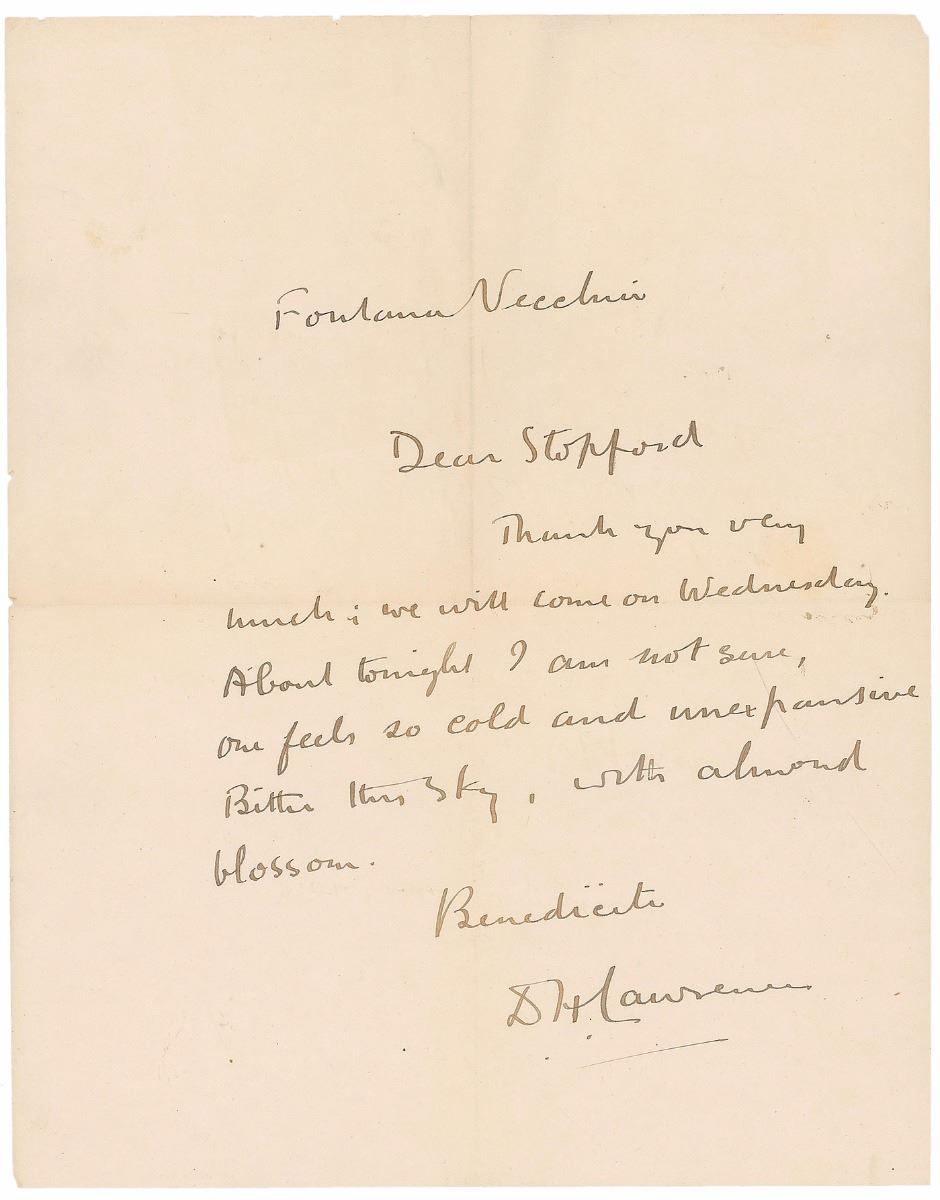 Fontana Vecchia
Dear Stopford
Thank you very
much; we will come on Wednesday.
About tonight I am not sure,
one feels so cold and unexpansive
Bitter this sky, with almond
blossom.
Benedicite
D H Lawrence